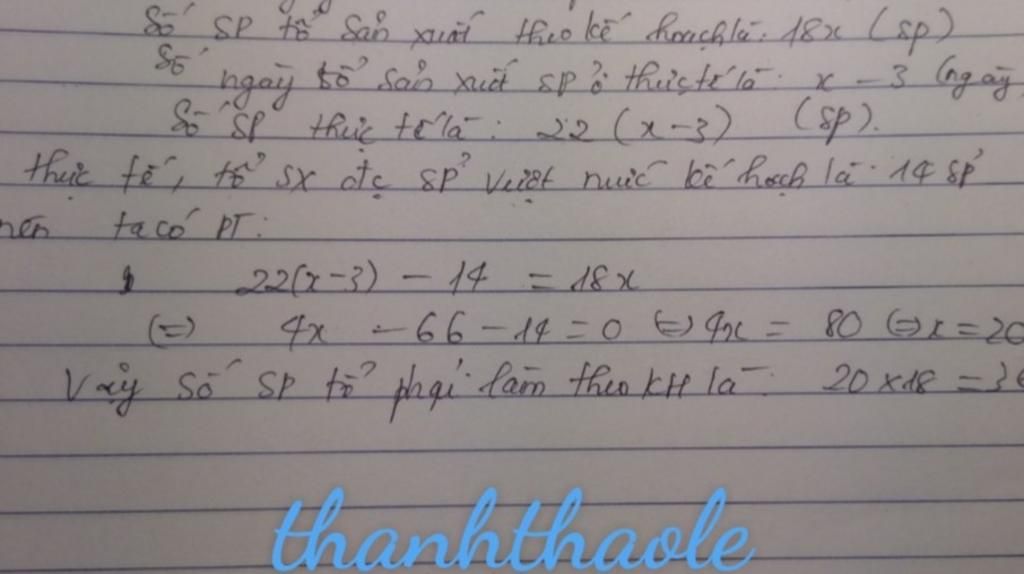 Số SP tổ sản xuất theo kế hoạch là: 18x (sp)
Số ngày tổ sản xuất SP ở thực tế là: x - 3 (ngày
Số SP thực tế là: 22 (x-3) (sp).
thực tế, tổ sx đc SP vượt mức kế hoạch là 14 SP
nên ta có PT:
22(x-3) - 14 = 18x
(=) 4x - 66 - 14 = 0 (=) 4x = 80 (=) x = 20
Vậy số SP tổ phải làm theo KH là: 20 x 18 = 36
thanhthaole